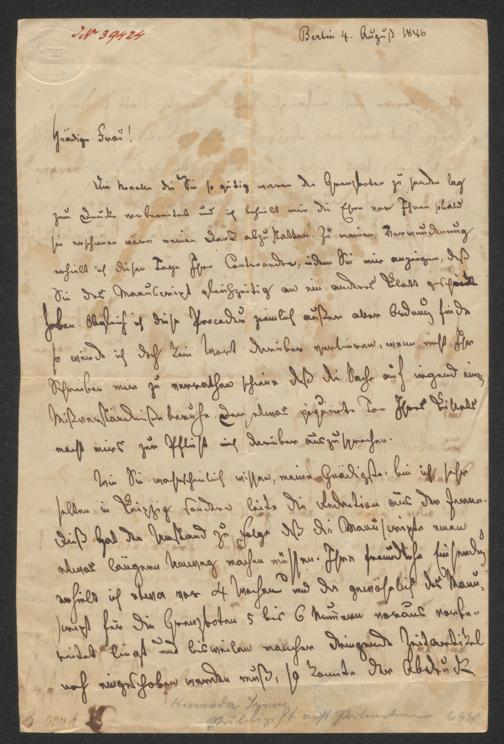 JN 39424
Berlin 4. August 1846
Gnädige Frau!
Die Novelle die Sie so gütig waren den Grenzboten zu senden lag
zum Drucke vorbereitet und ich behielt mir die Ehre vor Ihnen sobald
sie erschienen wäre meinen Dank abzustatten. Zu meiner Verwunderung
erhielt ich dieser Tage Ihre Contreordre, indem Sie mir anzeigen, daß
Sie das Manuscript gleichzeitig an ein anderes Blatt geschickt
haben. Obgleich ich diese Procedur ziemlich außer aller Ordnung finde
so würde ich doch kein Wort darüber verlieren, wenn nicht Ihr
Schreiben mir zu verrathen schiene daß die Sache auf irgend einem
Mißverständnisse beruhe. Der etwas Ton Ihres Billets
macht mirs zur Pflicht mich darüber auszusprechen.
Wie Sie wahrscheinlich wissen, meine Gnädigste, bin ich sehr
selten in Leipzig sondern leite die Redaction aus der Ferne.
Dieß hat den Umstand zur Folge daß die Manuscripte einen
etwas längeren Umweg machen müssen. Ihre freundliche Zusendung
erhielt ich etwa vor 4 Wochen und da gewöhnlich das Manu-
script für die Grenzboten 5 bis 6 Nummern voraus vorbe-
reitet liegt und bisweilen mancher dringende Zeitartikel
noch eingeschoben werden muß, so konnte der Abdruck